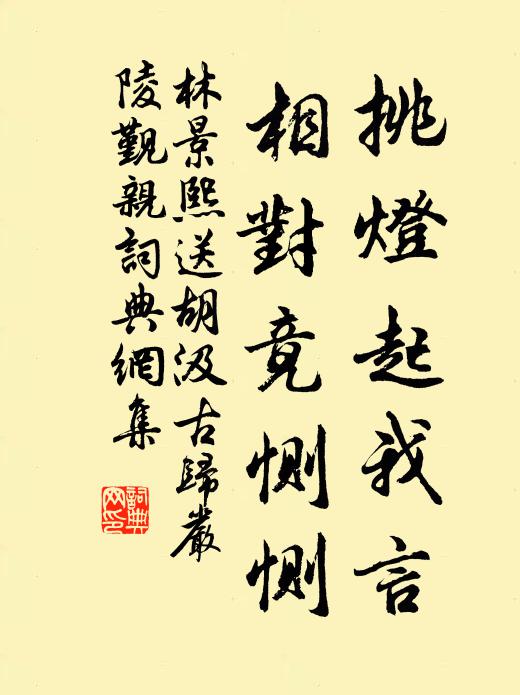 挑燈起我言
相對竟惻惻
林景熙送胡汲古歸嚴
陵觀親詞典網集
詞典網印